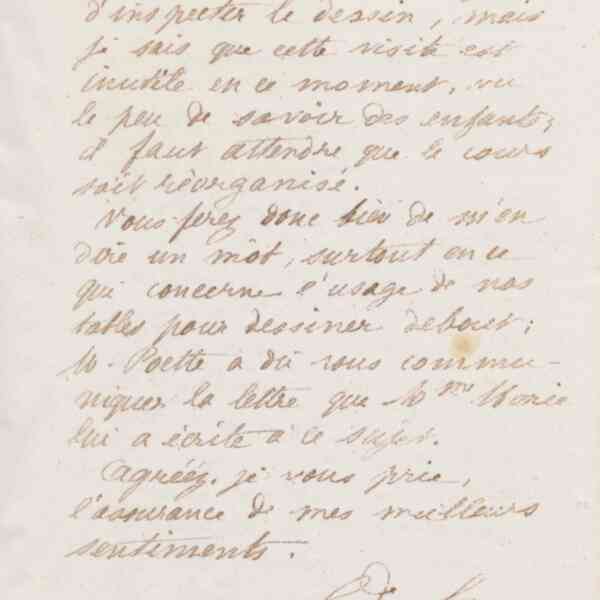 d'inspecter le dessin, mais
je sais que cette visite est
inutile en ce moment, vu
le peu de savoir des enfants;
il faut attendre que le cours
soit réorganisé.
Vous ferez donc bien de m'en
dire un môt, surtout en ce
qui concerne l'usage de nos
tables pour dessiner debout;
M. Poette a dû vous commu-
niquer la lettre que Mme
lui a écrite à ce sujet.
Agréez, je vous prie,
l'assurance de mes meilleurs
sentiments.